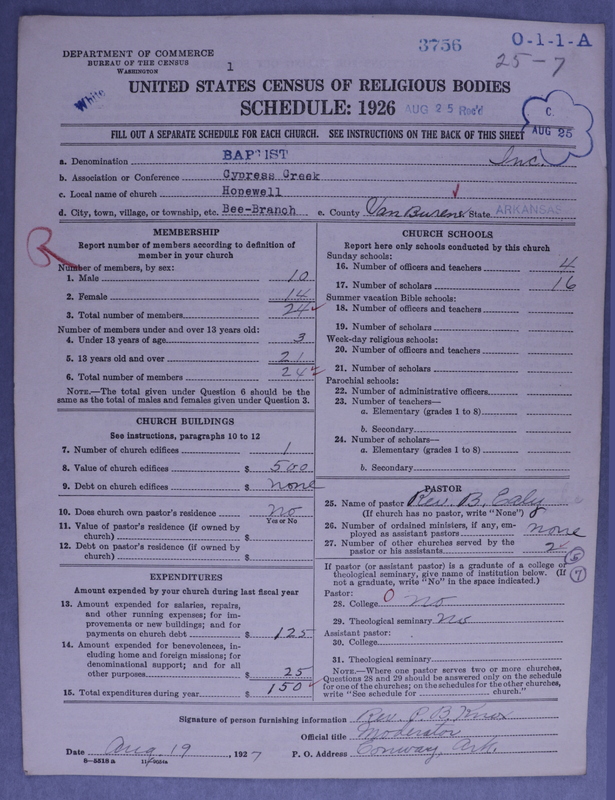 DEPARTMENT OF COMMERCE
BUREAU OF THE CENSUS
WASHINGTON
1
3756
O-1-1-A
25-7
White
UNITED STATES CENSUS OF RELIGIOUS BODIES
SCHEDULE: 1926
AUG 25 Rec'd
C.
AUG 25
FILL OUT A SEPARATE SCHEDULE FOR EACH CHURCH. SEE INSTRUCTIONS ON THE BACK OF THIS SHEET
a. Denomination BAPTIST Inc.
b. Association or Conference Cypress Creek
c. Local name of church Hopewell
d. City, town, village, or township, etc. Bee-Branch e. County Van Buren State ARKANSAS
MEMBERSHIP
Report number of members according to definition of
member in your church
Number of members, by sex:
1. Male 10
2. Female 14
3. Total number of members 24
Number of members under and over 13 years old:
4. Under 13 years of age 3
5. 13 years old and over 21
6. Total number of members 24
NOTE.—The total given under Question 6 should be the
same as the total of males and females given under Question 3.
CHURCH BUILDINGS
See instructions, paragraphs 10 to 12
7. Number of church edifices 1
8. Value of church edifices $ 500
9. Debt on church edifices $ none
10. Does church own pastor's residence no
Yes or No
11. Value of pastor's residence (if owned by
church) $
12. Debt on pastor's residence (if owned by
church) $
EXPENDITURES
Amount expended by your church during last fiscal year
13. Amount expended for salaries, repairs,
and other running expenses; for im-
provements or new buildings; and for
payments on church debt $ 125
14. Amount expended for benevolences, in-
cluding home and foreign missions; for
denominational support; and for all
other purposes $ 25
15. Total expenditures during year $ 150
CHURCH SCHOOLS
Report here only schools conducted by this church
Sunday schools:
16. Number of officers and teachers 4
17. Number of scholars 16
Summer vacation Bible schools:
18. Number of officers and teachers
19. Number of scholars
Week-day religious schools:
20. Number of officers and teachers
21. Number of scholars
Parochial schools:
22. Number of administrative officers
23. Number of teachers—
a. Elementary (grades 1 to 8)
b. Secondary
24. Number of scholars—
a. Elementary (grades 1 to 8)
b. Secondary
PASTOR
25. Name of pastor Rev. B. Ealy
(If church has no pastor, write "None")
26. Number of ordained ministers, if any, em-
ployed as assistant pastors none
27. Number of other churches served by the
pastor or his assistants 2
If pastor (or assistant pastor) is a graduate of a college or
theological seminary, give name of institution below. (If
not a graduate, write "No" in the space indicated.)
Pastor:
28. College no
29. Theological seminary No
Assistant pastor:
30. College
31. Theological seminary
NOTE.—Where one pastor serves two or more churches,
Questions 28 and 29 should be answered only on the schedule
for one of the churches; on the schedules for the other churches,
write "See schedule for church."
Signature of person furnishing information Rev. P. B. Knox
Official title Moderator
Date Aug. 19, 1927 P. O. Address Conway, Ark.
8-5518a